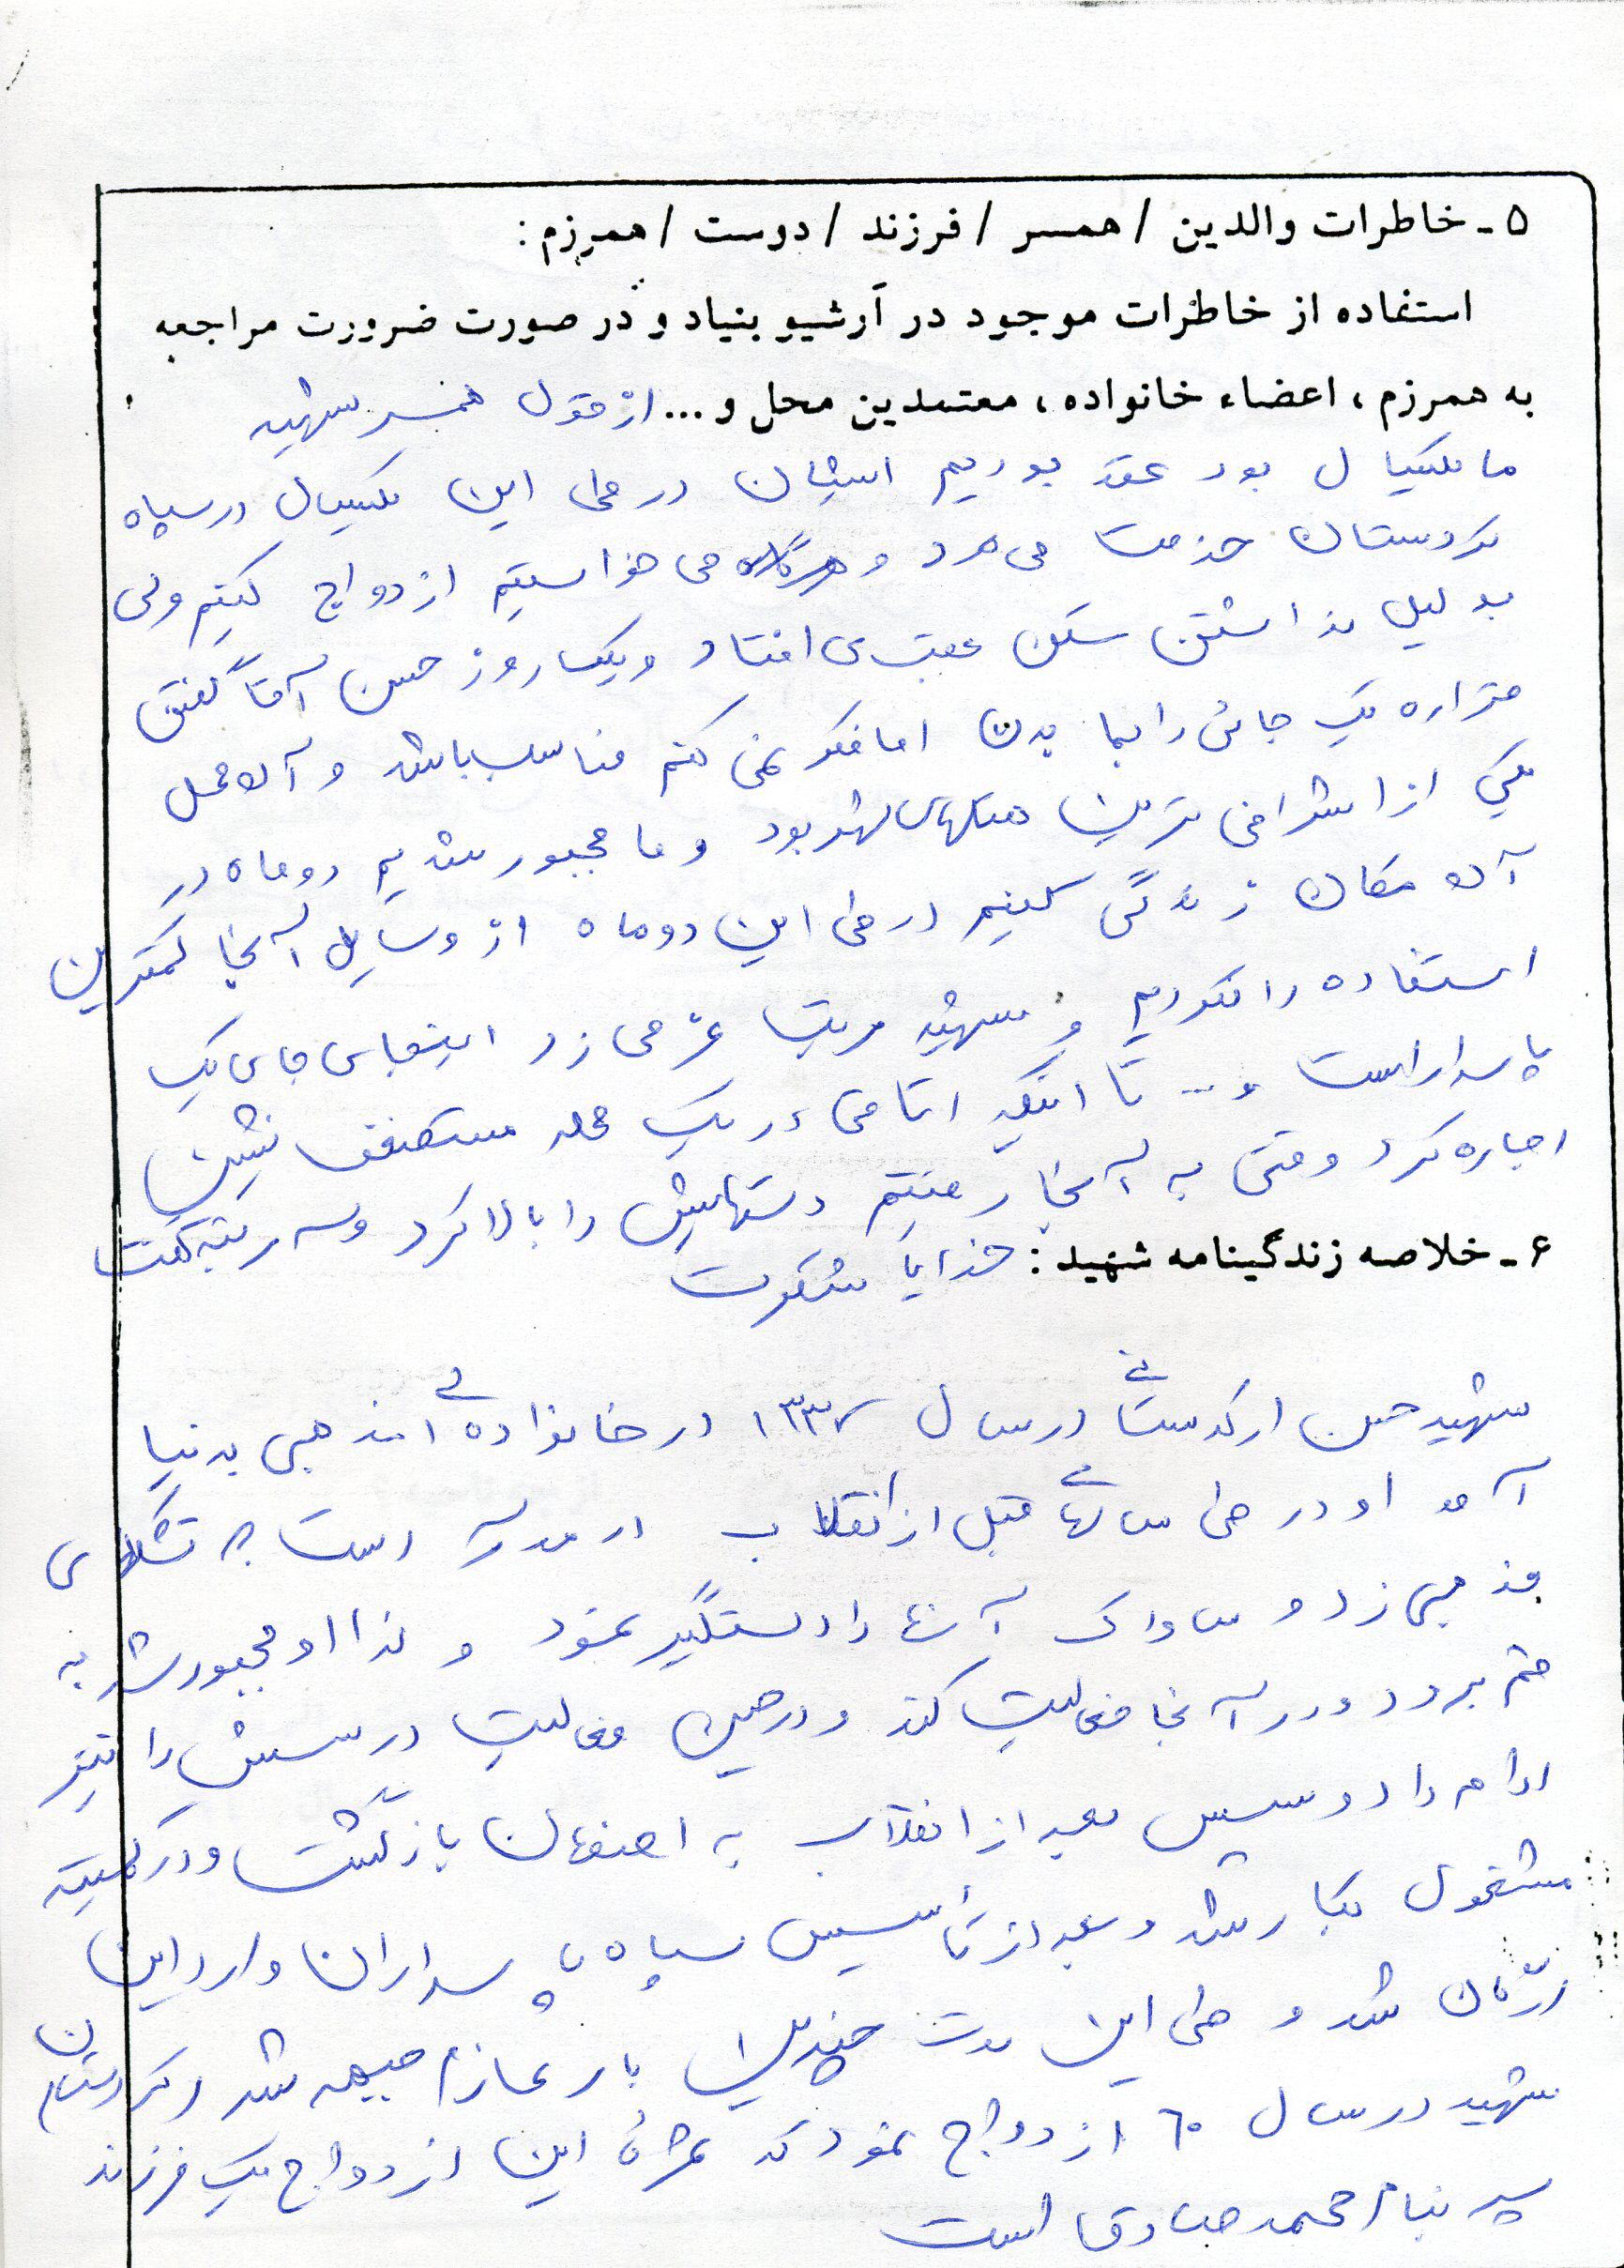 ۵ـ خاطرات والدین / همسر / فرزند / دوست / همرزم :
استفاده از خاطرات موجود در آرشیو بنیاد و در صورت ضرورت مراجعه
به همرزم ، اعضاء خانواده ، معتمدین محل و ... از قول همسر شهید
ما یکسال بود عقد بودیم ایشان در طی این یکسال در سپاه
کردستان خدمت می کرد و هرگاه می خواستیم ازدواج کنیم ولی
بدلیل نداشتن مسکن عقب می افتاد و یک روز حسن آقا گفت
قراره یک جائی را بما بدن اما فکر نمی کنم مناسب باشد و آن محل
یکی از اشرافی ترین هتلهای شهر بود و ما مجبور شدیم دو ماه در
آن مکان زندگی کنیم در طی این دو ماه از وسایل آنجا کمترین
استفاده را نکردیم و شهید مرتب غر می زد اینجا جای یک
پاسدار است و ... تا اینکه اتاقی در یک محله مستضعف نشین
اجاره کرد وقتی به آنجا رفتیم دستهایش را بالا کرد و سه مرتبه گفت
خدایا شکرت
۶ـ خلاصه زندگینامه شهید :
شهید حسن در سال ۱۳۳۷ در خانواده ای مذهبی بدنیا
آمد او در طی سالهای قبل از انقلاب در مدرسه دست به تشکلهای
مذهبی زد و ساواک آنها را دستگیر نمود و لذا او مجبور شد به
قم برود و در آنجا فعالیت کند و در حین فعالیت درسش را نیز
ادامه داد و سپس بعد از انقلاب به اصفهان بازگشت و در کمیته
مشغول بکار شد و بعد از تأسیس سپاه پاسداران وارد این
ارگان شد و طی این مدت چندین بار عازم جبهه شد کردستان
شهید در سال ۶۰ ازدواج نمود که ثمرهٔ این ازدواج یک فرزند
پسر بنام محمد صادق است